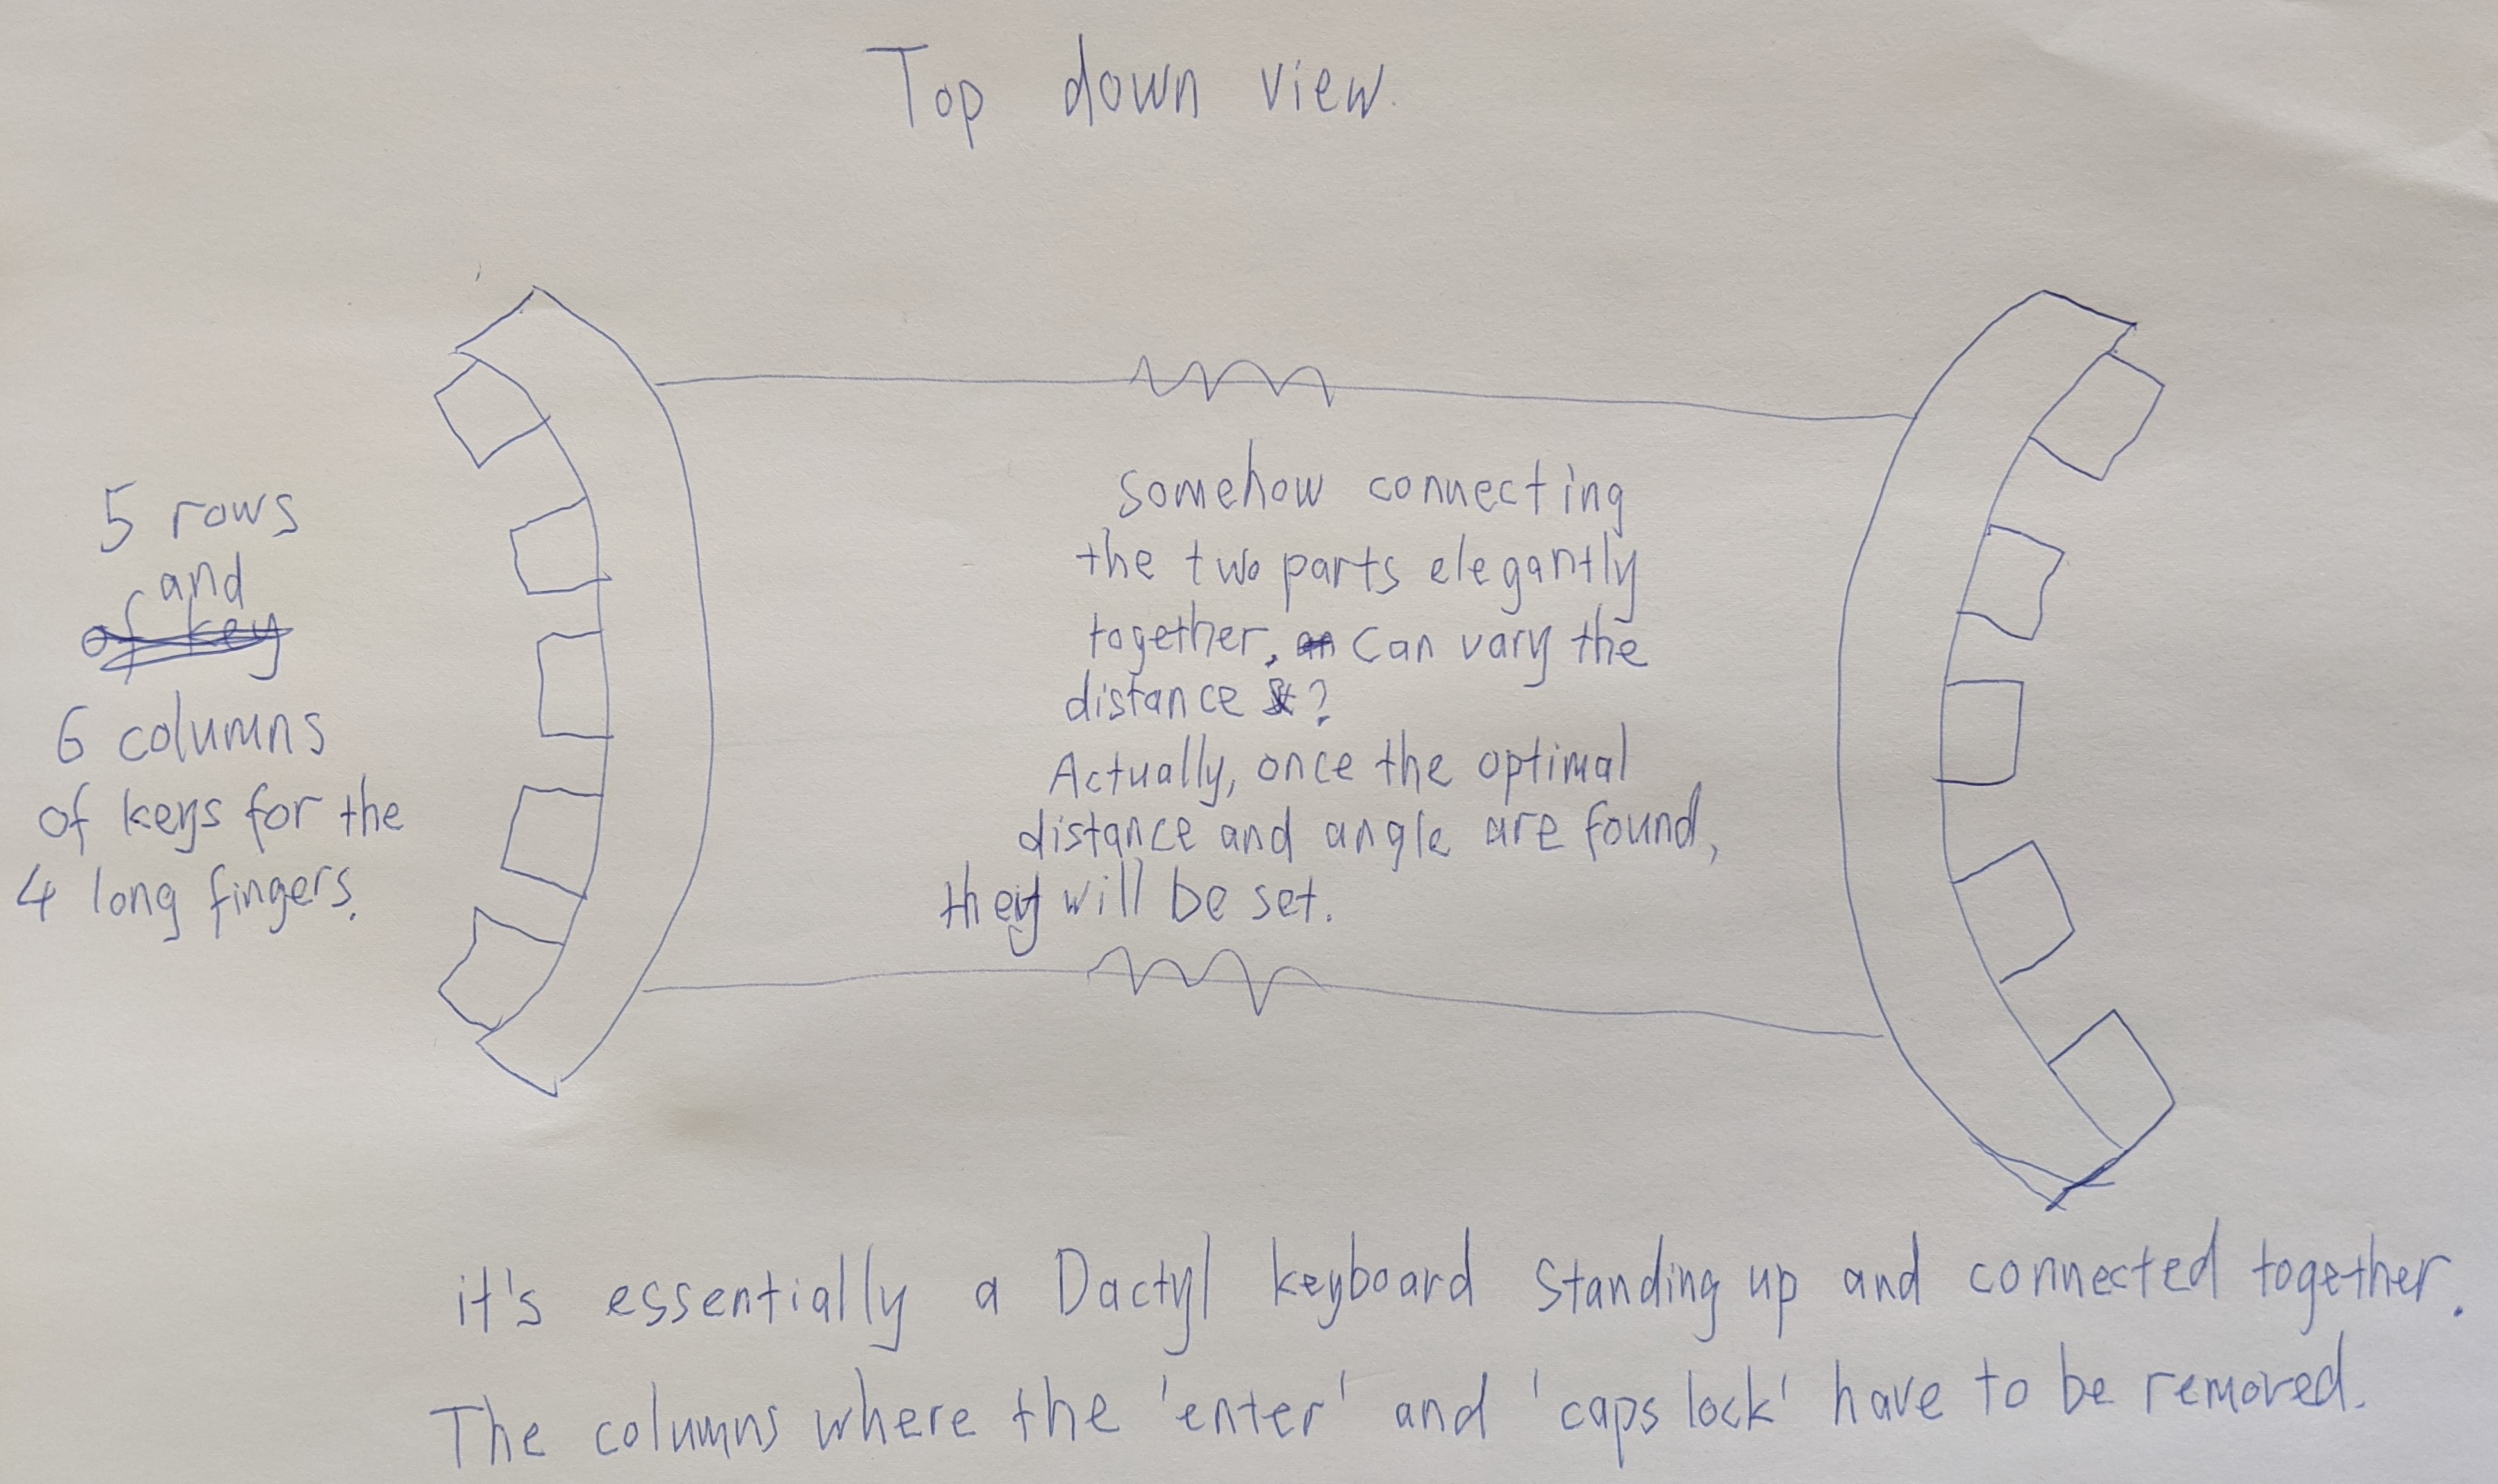 Top down view.
5 rows
and
of key
6 columns
of keys for the
4 long fingers.
Somehow connecting
the two parts elegantly
together, can vary the
distance ?
Actually, once the optimal
distance and angle are found,
they will be set.
it's essentially a Dactyl keyboard standing up and connected together.
The columns where the 'enter' and 'caps lock' have to be removed.